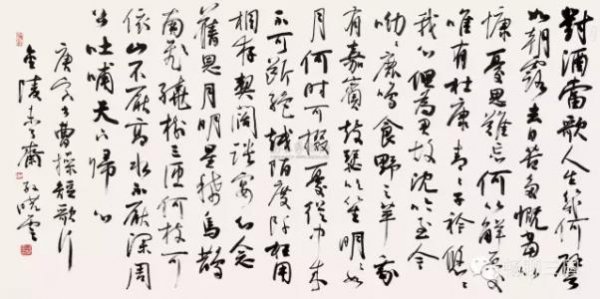 對酒當歌人生幾何譬
如朝露去日苦多慨當以
慷憂思難忘何以解憂
唯有杜康青〻子衿悠〻
我心但為君故沈吟至今
呦〻鹿鳴食野之苹我
有嘉賓鼓瑟吹笙明〻如
月何時可掇憂從中來
不可斷絕越陌度阡枉用
相存契闊談宴心念
舊恩月明星稀烏鵲
南飛繞樹三匝何枝可
依山不厭高水不厭深周
公吐哺天下歸心
庚寅冬曹操短歌行
金陵未了齋孫曉雲